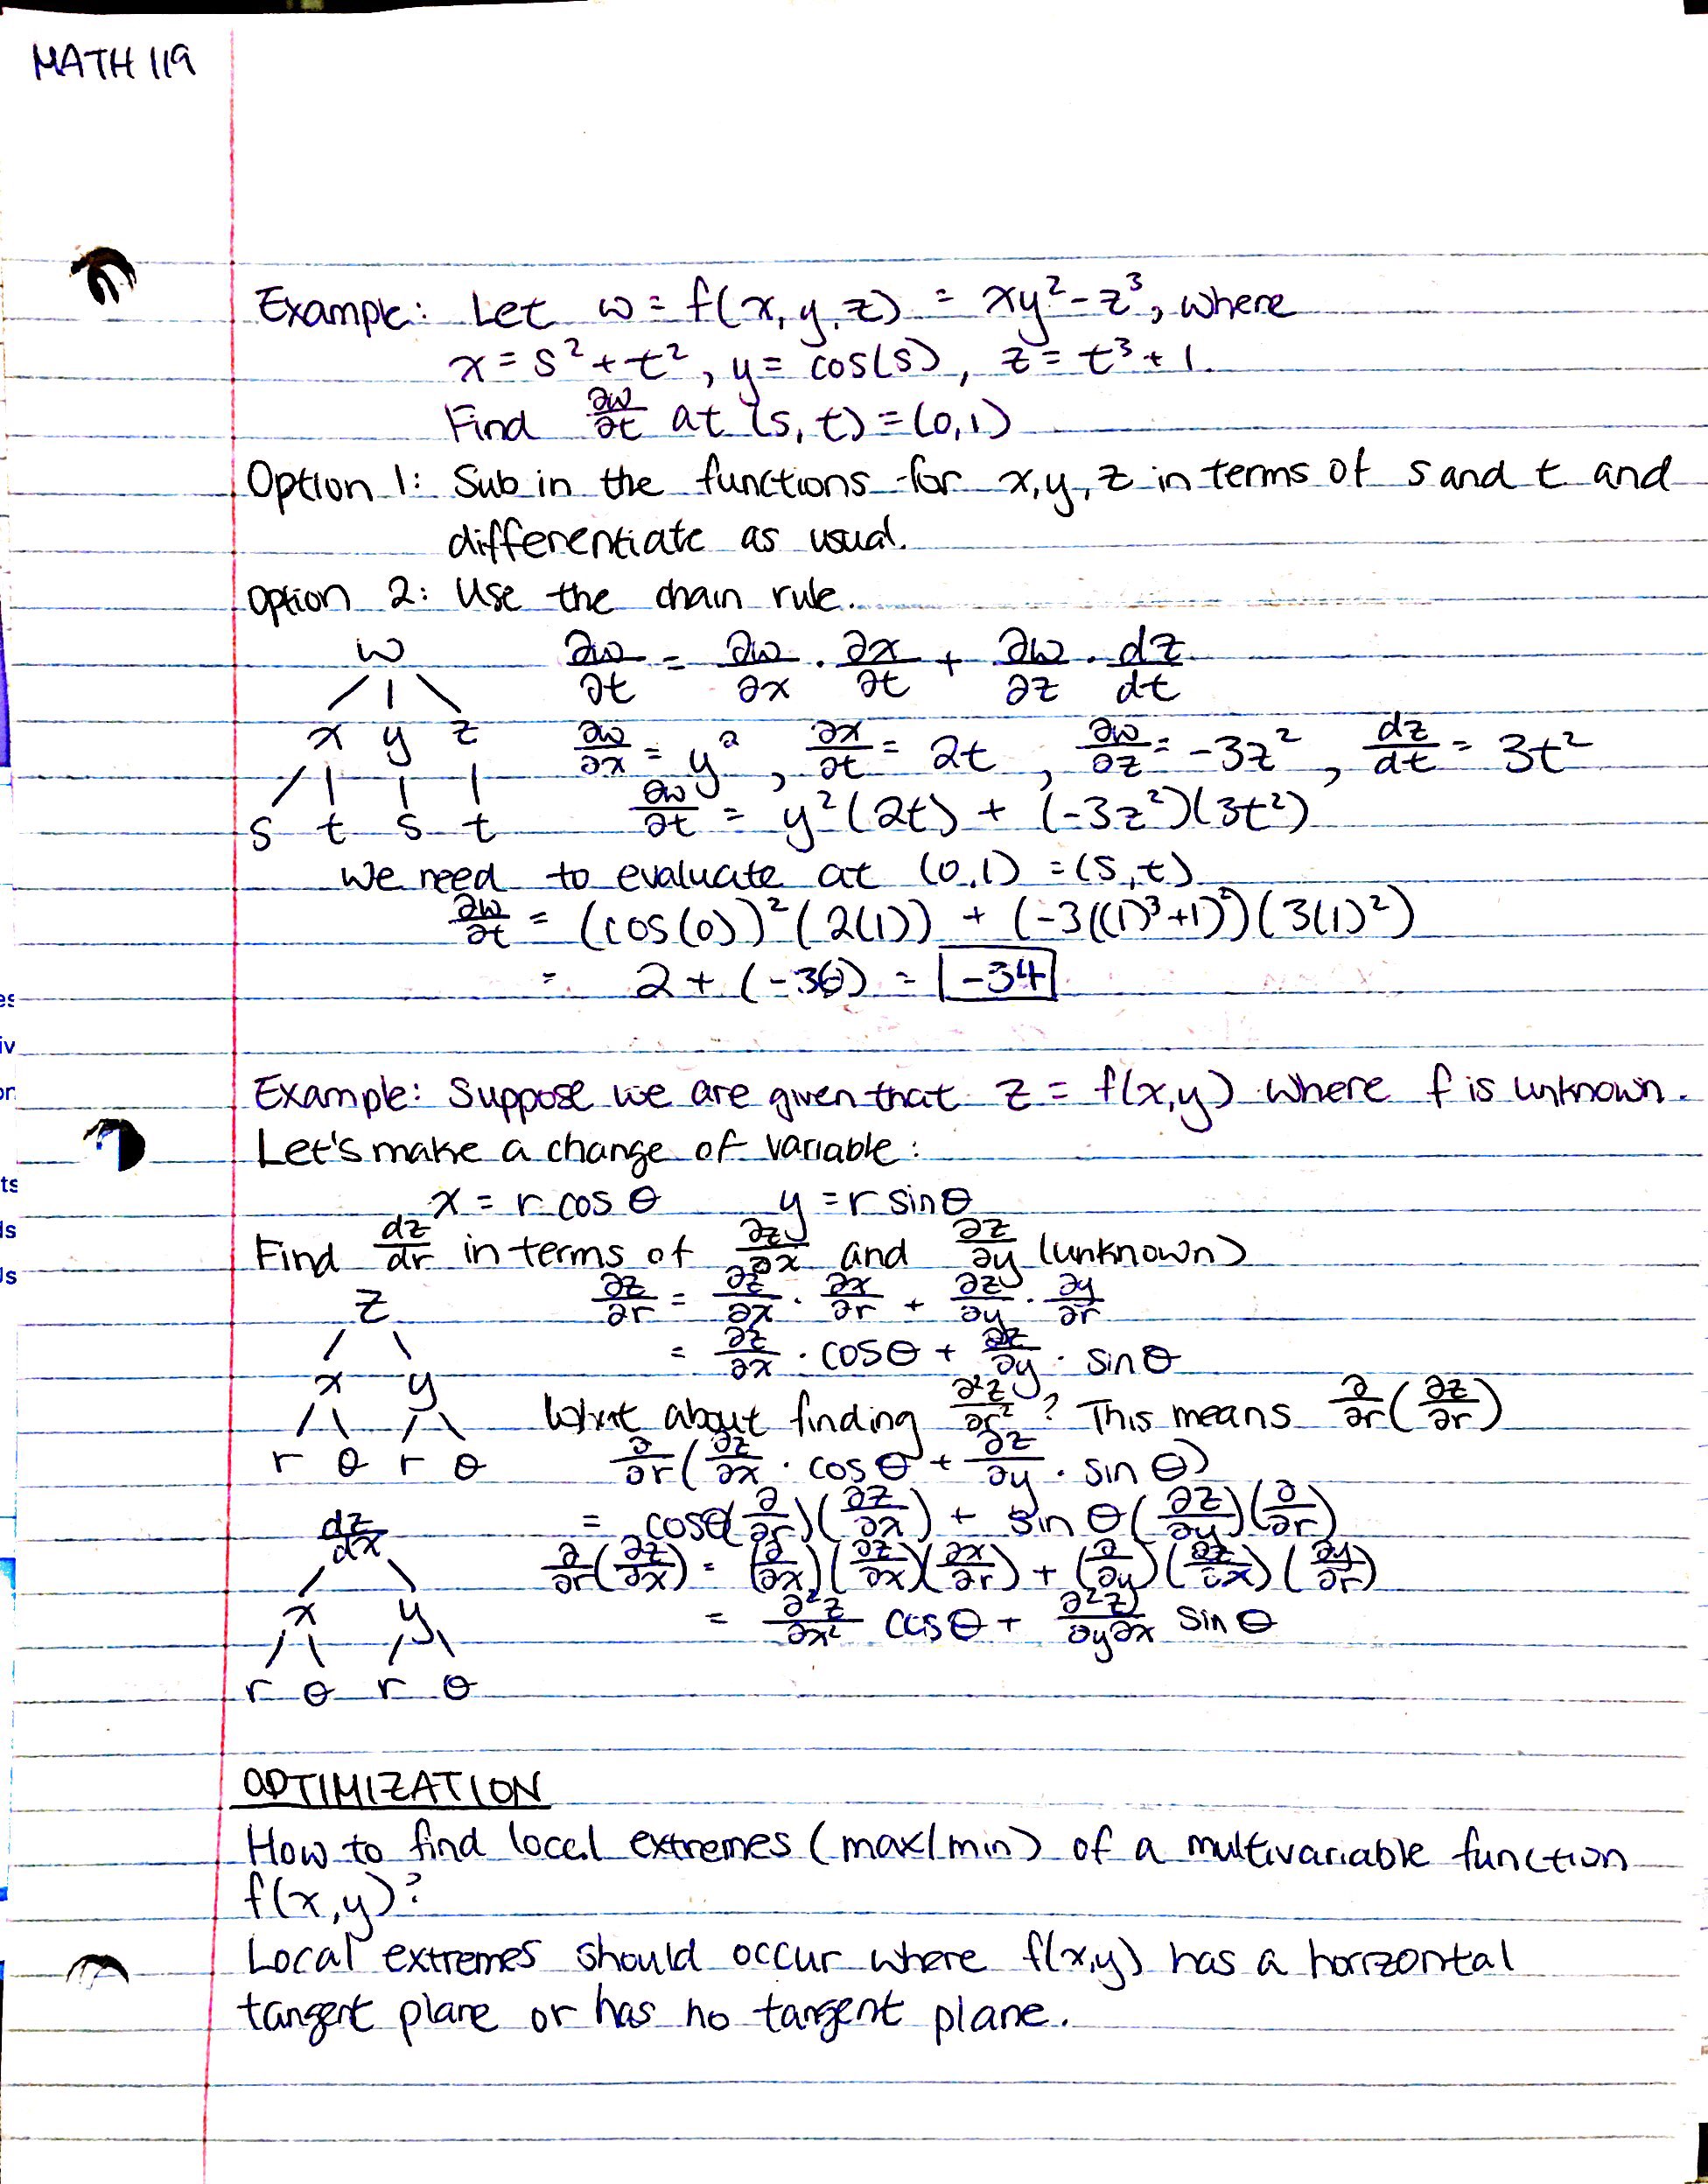 MATH 119
Example: Let w = f(x, y, z) = xy² - z³, where
x = s² + t², y = cos(s), z = t³ + 1
Find ∂w/∂t at (s, t) = (0, 1)
Option 1: Sub in the functions for x, y, z in terms of s and t and
differentiate as usual.
Option 2: Use the chain rule.
w
∂w/∂t = ∂w/∂x · ∂x/∂t + ∂w/∂z · dz/dt
x y z
∂w/∂x = y², ∂x/∂t = 2t, ∂w/∂z = -3z², dz/dt = 3t²
s t s t
∂w/∂t = y²(2t) + (-3z²)(3t²)
We need to evaluate at (0,1) = (s,t)
∂w/∂t = (cos(0))²(2(1)) + (-3((1)³+1)²)(3(1)²)
= 2 + (-36) = -34
Example: Suppose we are given that z = f(x,y) where f is unknown.
Let's make a change of variable:
x = r cos θ y = r sin θ
Find dz/dr in terms of ∂z/∂x and ∂z/∂y (unknown)
z
∂z/∂r = ∂z/∂x · ∂x/∂r + ∂z/∂y · ∂y/∂r
= ∂z/∂x · cos θ + ∂z/∂y · sin θ
x y
What about finding ∂²z/∂r²? This means ∂/∂r(∂z/∂r)
r θ r θ
∂/∂r(∂z/∂x · cos θ + ∂z/∂y · sin θ)
dz/dx
= cos θ(∂/∂r)(∂z/∂x) + sin θ(∂z/∂y)(∂/∂r)
∂/∂r(∂z/∂x) = (∂/∂x)(∂z/∂x)(∂x/∂r) + (∂/∂y)(∂z/∂x)(∂y/∂r)
x y
= ∂²z/∂x² cos θ + ∂²z/∂y∂x sin θ
r θ r θ
OPTIMIZATION
How to find local extremes (max/min) of a multivariable function
f(x,y)?
Local extremes should occur where f(x,y) has a horizontal
tangent plane or has no tangent plane.